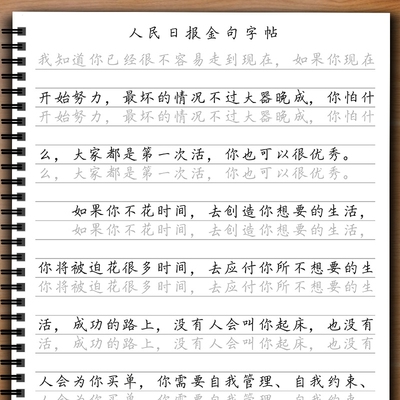 人民日报金句字帖
我知道你已经很不容易走到现在，如果你现在
开始努力，最坏的情况不过大器晚成，你怕什
开始努力，最坏的情况不过大器晚成，你怕什
么，大家都是第一次活，你也可以很优秀。
么，大家都是第一次活，你也可以很优秀。
如果你不花时间，去创造你想要的生活，
如果你不花时间，去创造你想要的生活，
你将被迫花很多时间，去应付你所不想要的生
你将被迫花很多时间，去应付你所不想要的生
活，成功的路上，没有人会叫你起床，也没有
活，成功的路上，没有人会叫你起床，也没有
人会为你买单，你需要自我管理、自我约束、
人会为你买单，你需要自我管理、自我约束、